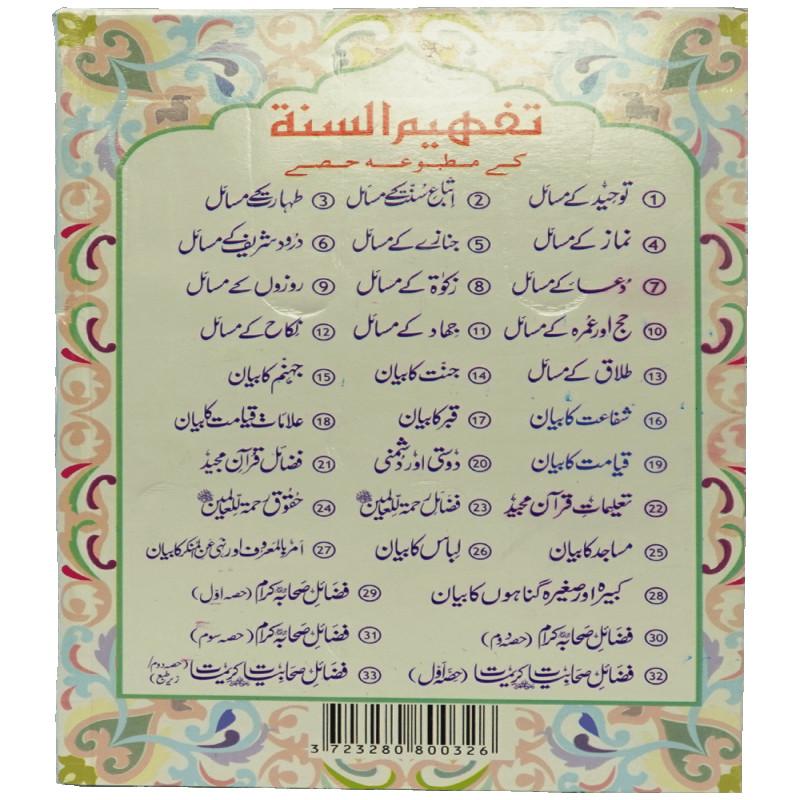 تفہیم السنۃ
کے مطبوعہ حصے
① توحید کے مسائل ② اتباع سنت کے مسائل ③ طہارت کے مسائل
④ نماز کے مسائل ⑤ جنازے کے مسائل ⑥ درود شریف کے مسائل
⑦ دعا کے مسائل ⑧ زکوٰۃ کے مسائل ⑨ روزوں کے مسائل
⑩ حج اور عمرہ کے مسائل ⑪ جہاد کے مسائل ⑫ نکاح کے مسائل
⑬ طلاق کے مسائل ⑭ جنت کا بیان ⑮ جہنم کا بیان
⑯ شفاعت کا بیان ⑰ قبر کا بیان ⑱ علامات قیامت کا بیان
⑲ قیامت کا بیان ⑳ دوستی اور دشمنی ㉑ فضائل قرآن مجید
㉒ تعلیمات قرآن مجید ㉓ فضائل رحمۃ للعالمین ﷺ ㉔ حقوق رحمۃ للعالمین ﷺ
㉕ مساجد کا بیان ㉖ لباس کا بیان ㉗ امر بالمعروف اور نہی عن المنکر کا بیان
㉘ کبیرہ اور صغیرہ گناہوں کا بیان ㉙ فضائل صحابہ کرام (حصہ اول)
㉚ فضائل صحابہ کرام (حصہ دوم) ㉛ فضائل صحابہ کرام (حصہ سوم)
㉜ فضائل صحابیات کریمات (حصہ اول) ㉝ فضائل صحابیات کریمات (حصہ دوم / زیر طبع)
3 723280 800326